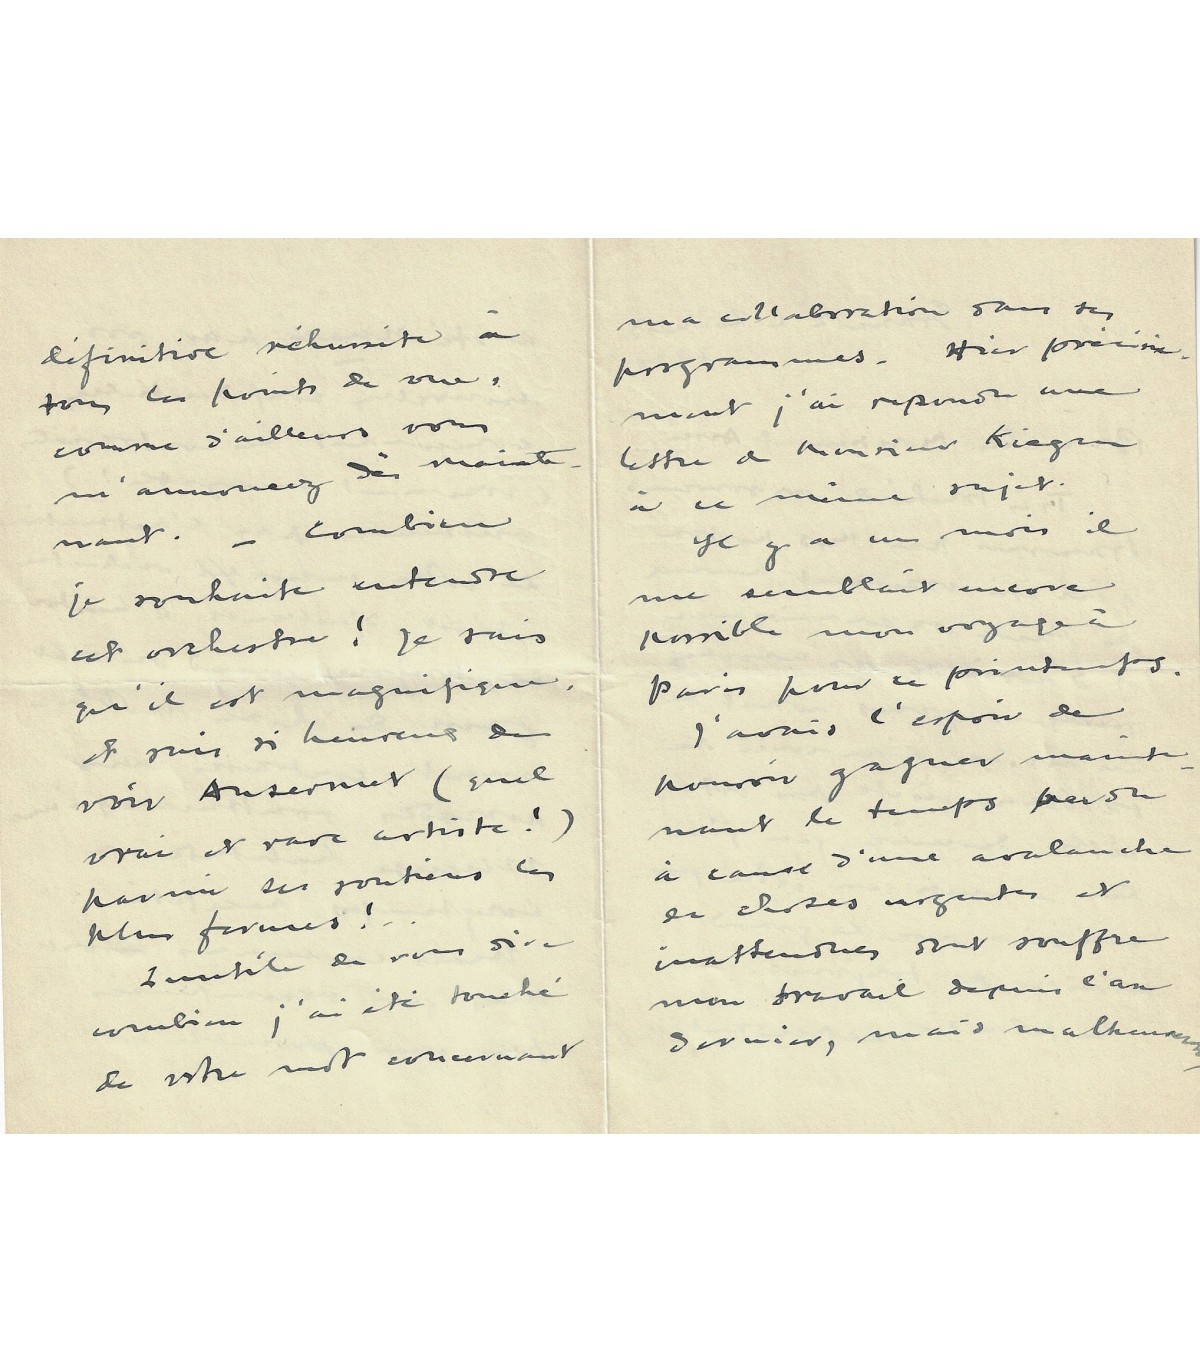 définitive réhussite à
tous les points de vue,
comme d'ailleurs vous
m'annoncez dès mainte-
nant. – Combien
je souhaite entendre
cet orchestre! Je sais
qu'il est magnifique,
et suis si heureux de
voir Ansermet (quel
vrai et rare artiste!)
parmi ses soutiens les
plus fermes!..
Inutile de vous dire
combien j'ai été touché
de votre mot concernant
ma collaboration dans ses
programmes. Hier précisé-
ment j'ai repondu une
lettre de Monsieur
à ce même sujet.
Il y a un mois il
me semblait encore
possible mon voyage à
Paris pour ce printemps.
J'avais l'espoir de
pouvoir gagner mainte-
nant le temps perdu
à cause d'une avalanche
de choses urgentes et
inattendues dont souffre
mon travail depuis l'an
dernier, mais malheureuse